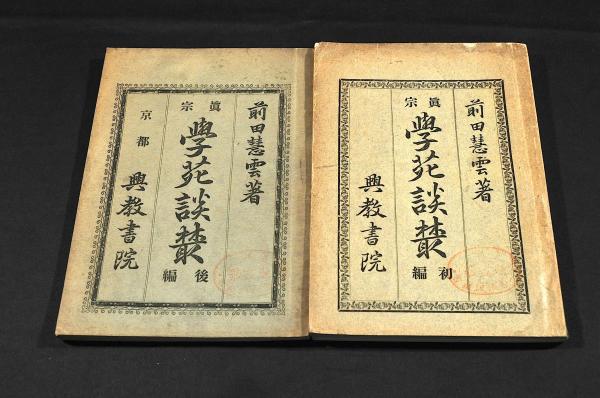 前田慧雲著
眞宗
學苑談叢
初編
興教書院
前田慧雲著
眞宗
學苑談叢
後編
京都
興教書院